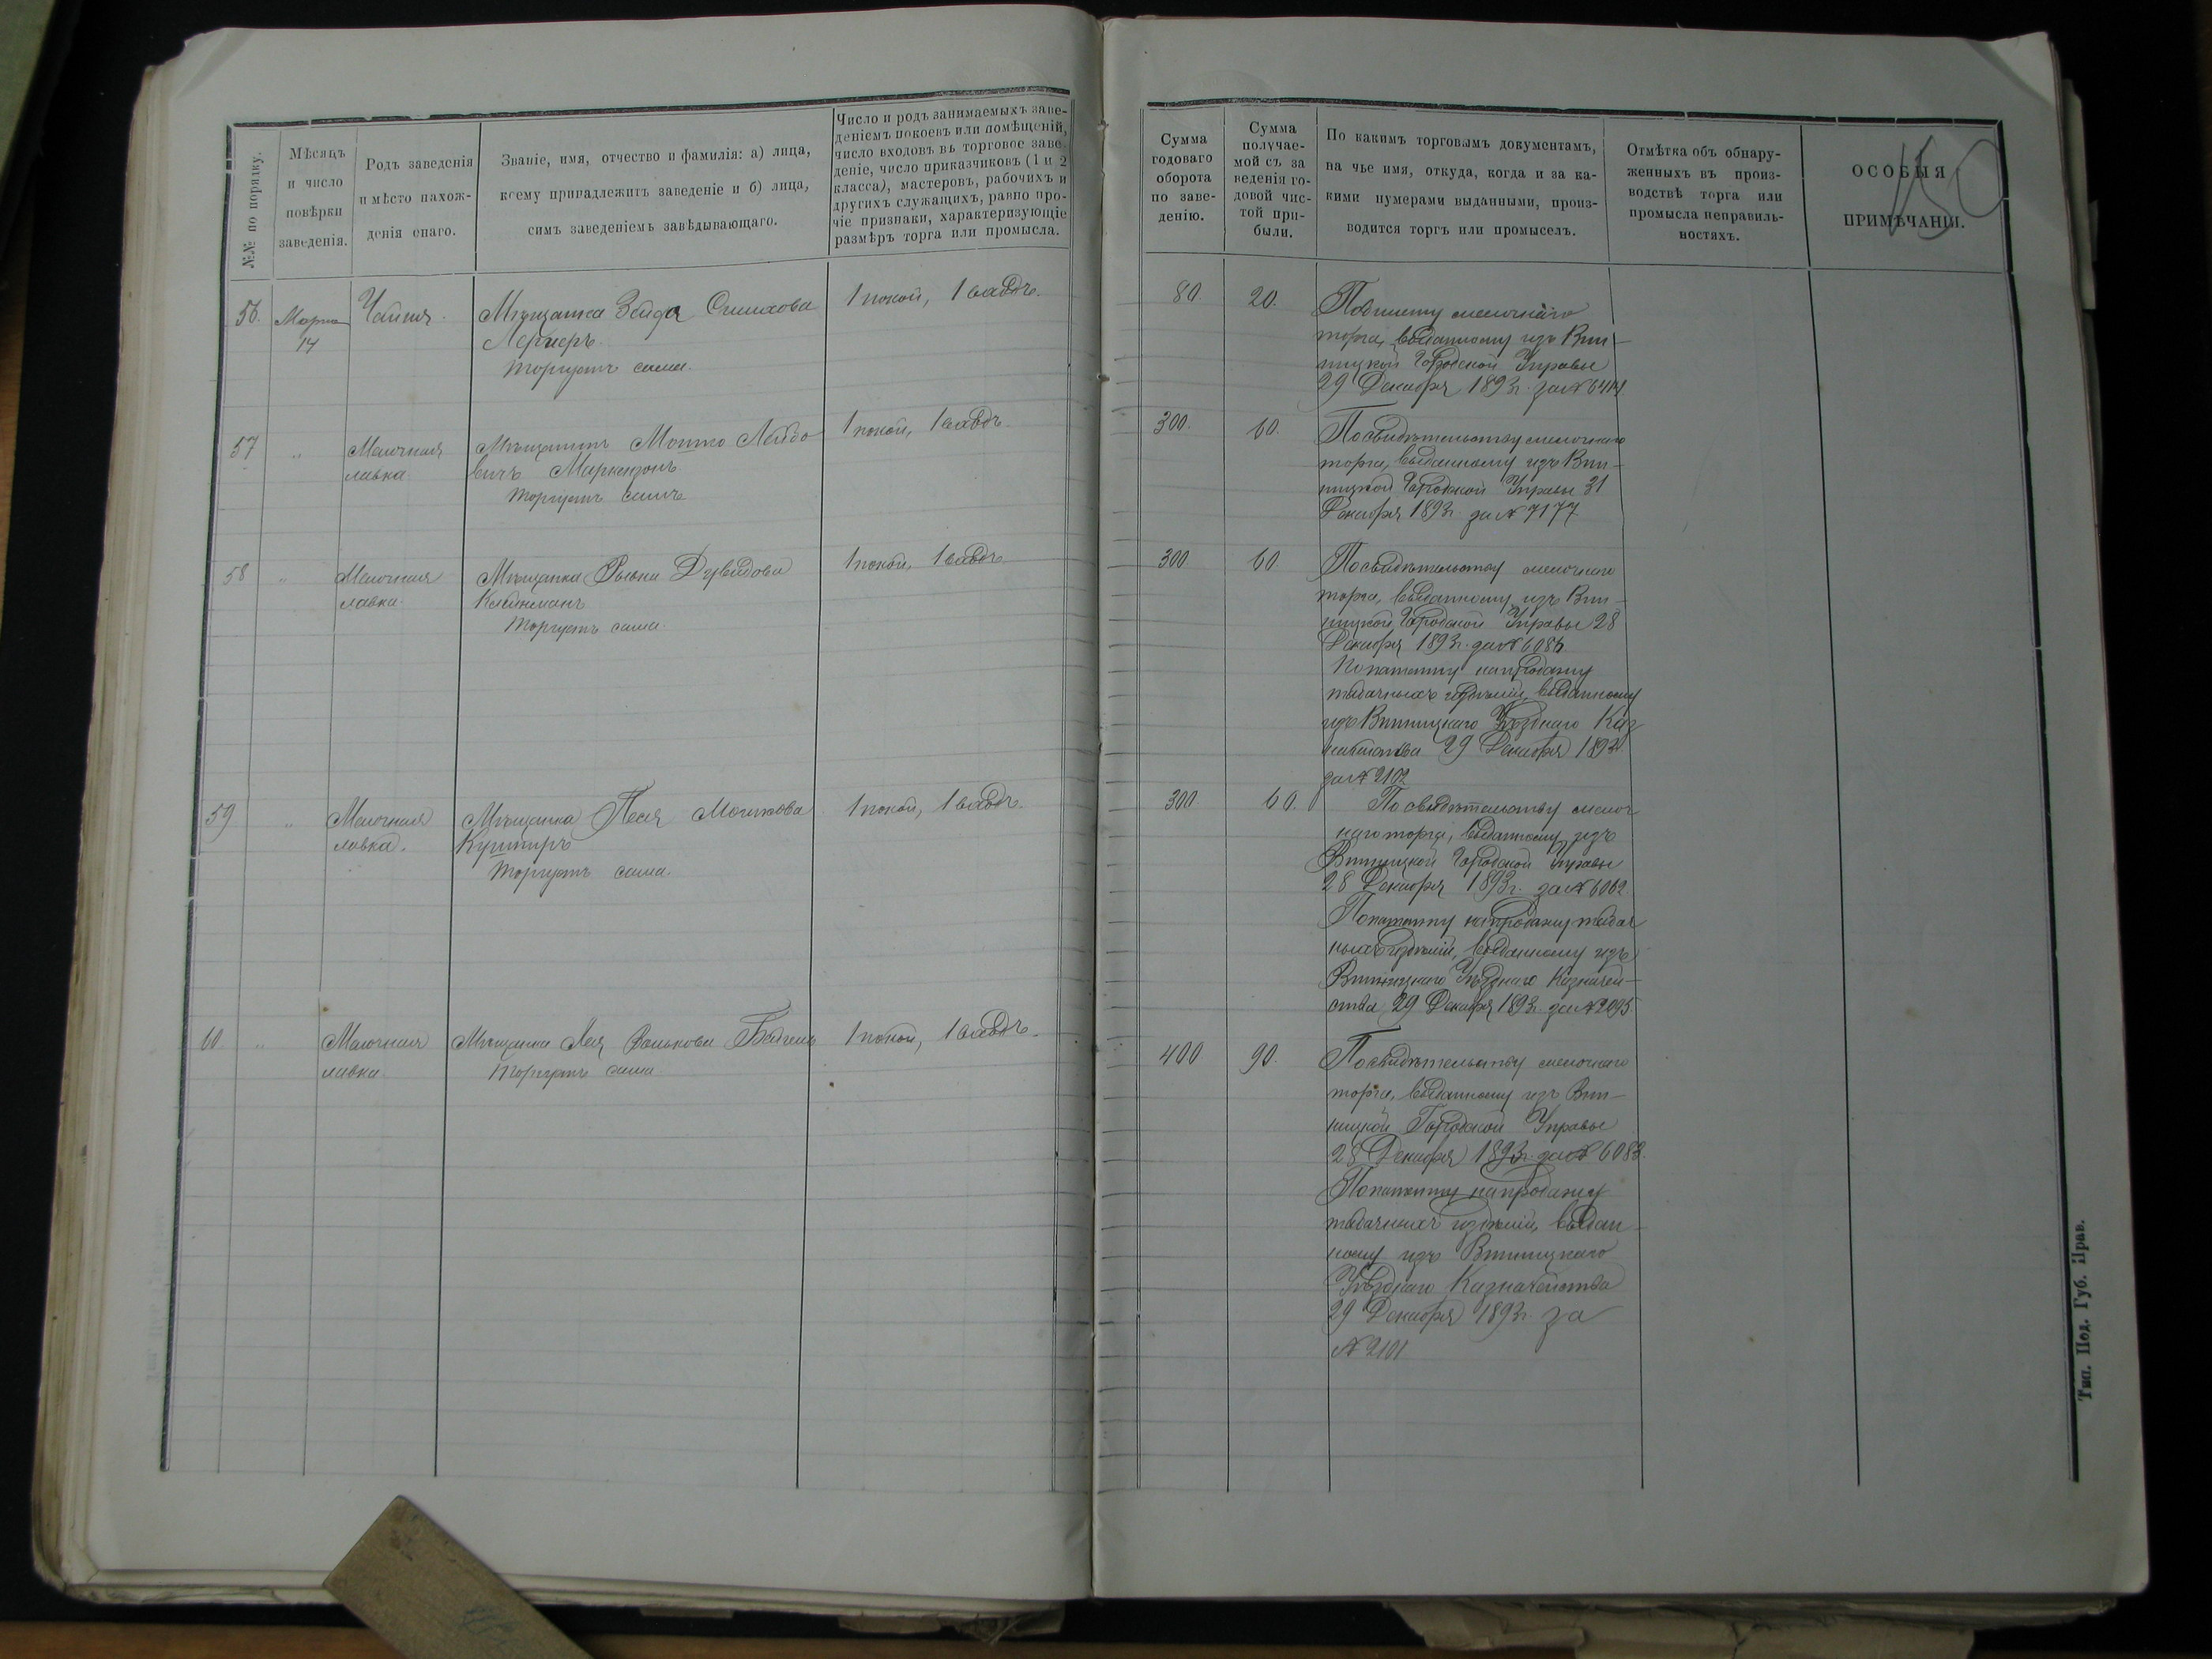 №№ по порядку.
Мѣсяцъ
и число
повѣрки
заведенія.
Родъ заведенія
и мѣсто нахож-
денія онаго.
Званіе, имя, отчество и фамилія: а) лица,
коему принадлежитъ заведеніе и б) лица,
симъ заведеніемъ завѣдывающаго.
Число и родъ занимаемыхъ заве-
деніемъ покоевъ или помѣщеній,
число входовъ въ торговое заве-
деніе, число приказчиковъ (1 и 2
класса), мастеровъ, рабочихъ и
другихъ служащихъ, равно про-
чіе признаки, характеризующіе
размѣръ торга или промысла.
Сумма
годоваго
оборота
по заве-
денію.
Сумма
получае-
мой съ за
веденія го-
довой чис-
той при-
были.
По какимъ торговымъ документамъ,
на чье имя, откуда, когда и за ка-
кими нумерами выданными, произ-
водится торгъ или промыселъ.
Отмѣтка объ обнару-
женныхъ въ произ-
водствѣ торга или
промысла неправиль-
ностяхъ.
ОСОБЫЯ
ПРИМѢЧАНІЯ.
150
56.
Марта
14
Чайная.
Мѣщанка Зейда Симхова
Лернеръ
торгуетъ сама.
1 покой, 1 входъ.
80.
20.
мелочнаго
торга, выданному изъ Вин-
ницкой Городской Управы
29 Декабря 1893 г. за №
57
"
Мелочная
лавка
Мѣщанинъ Мошко Лейбо
вичъ
торгуетъ самъ
1 покой, 1 входъ.
300.
60.
По свидѣтельству мелочнаго
торга, выданному изъ Вин-
ницкой Городской Управы 31
Декабря 1893 г. за № 7177
58
"
Мелочная
лавка.
Мѣщанка Дувидова
Клейнманъ
торгуетъ сама.
1 покой, 1 входъ
300
60.
По свидѣтельству мелочнаго
торга, выданному изъ Вин-
ницкой Городской Управы 28
Декабря 1893 г. за № 6086
По патенту на продажу
табачныхъ издѣлій, выданному
изъ Винницкаго Уѣзднаго Каз
начейства 29 Декабря 1893
за № 2102
59
"
Мелочная
лавка.
Мѣщанка Песя Мошкова
Кушниръ
торгуетъ сама.
1 покой, 1 входъ.
300
60.
По свидѣтельству мелоч
наго торга, выданному изъ
Винницкой Городской Управы
28 Декабря 1893 г. за № 6062
По патенту на продажу табач
ныхъ издѣлій, выданному изъ
Винницкаго Уѣзднаго Казначей-
ства 29 Декабря 1893 г. за № 2095
60.
"
Мелочная
лавка
Мѣщанка Лея
торгуетъ сама
1 покой, 1 входъ.
400
90.
По свидѣтельству мелочнаго
торга, выданному изъ Вин-
ницкой Городской Управы
28 Декабря 1893 г. за № 6083.
По патенту на продажу
табачныхъ издѣлій, выдан-
ному изъ Винницкаго
Уѣзднаго Казначейства
29 Декабря 1893 г. за
№ 2101
Тип. Под. Губ. Прав.